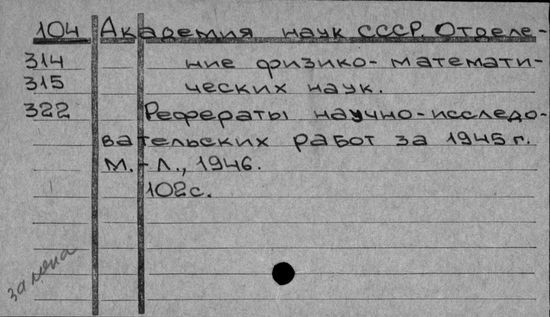 104 Академия наук СССР. Отделе-
314 ние физико-математи-
315 ческих наук.
322 Рефераты научно-исследо-
вательских работ за 1945 г.
М.-Л., 1946.
102 с.
замена